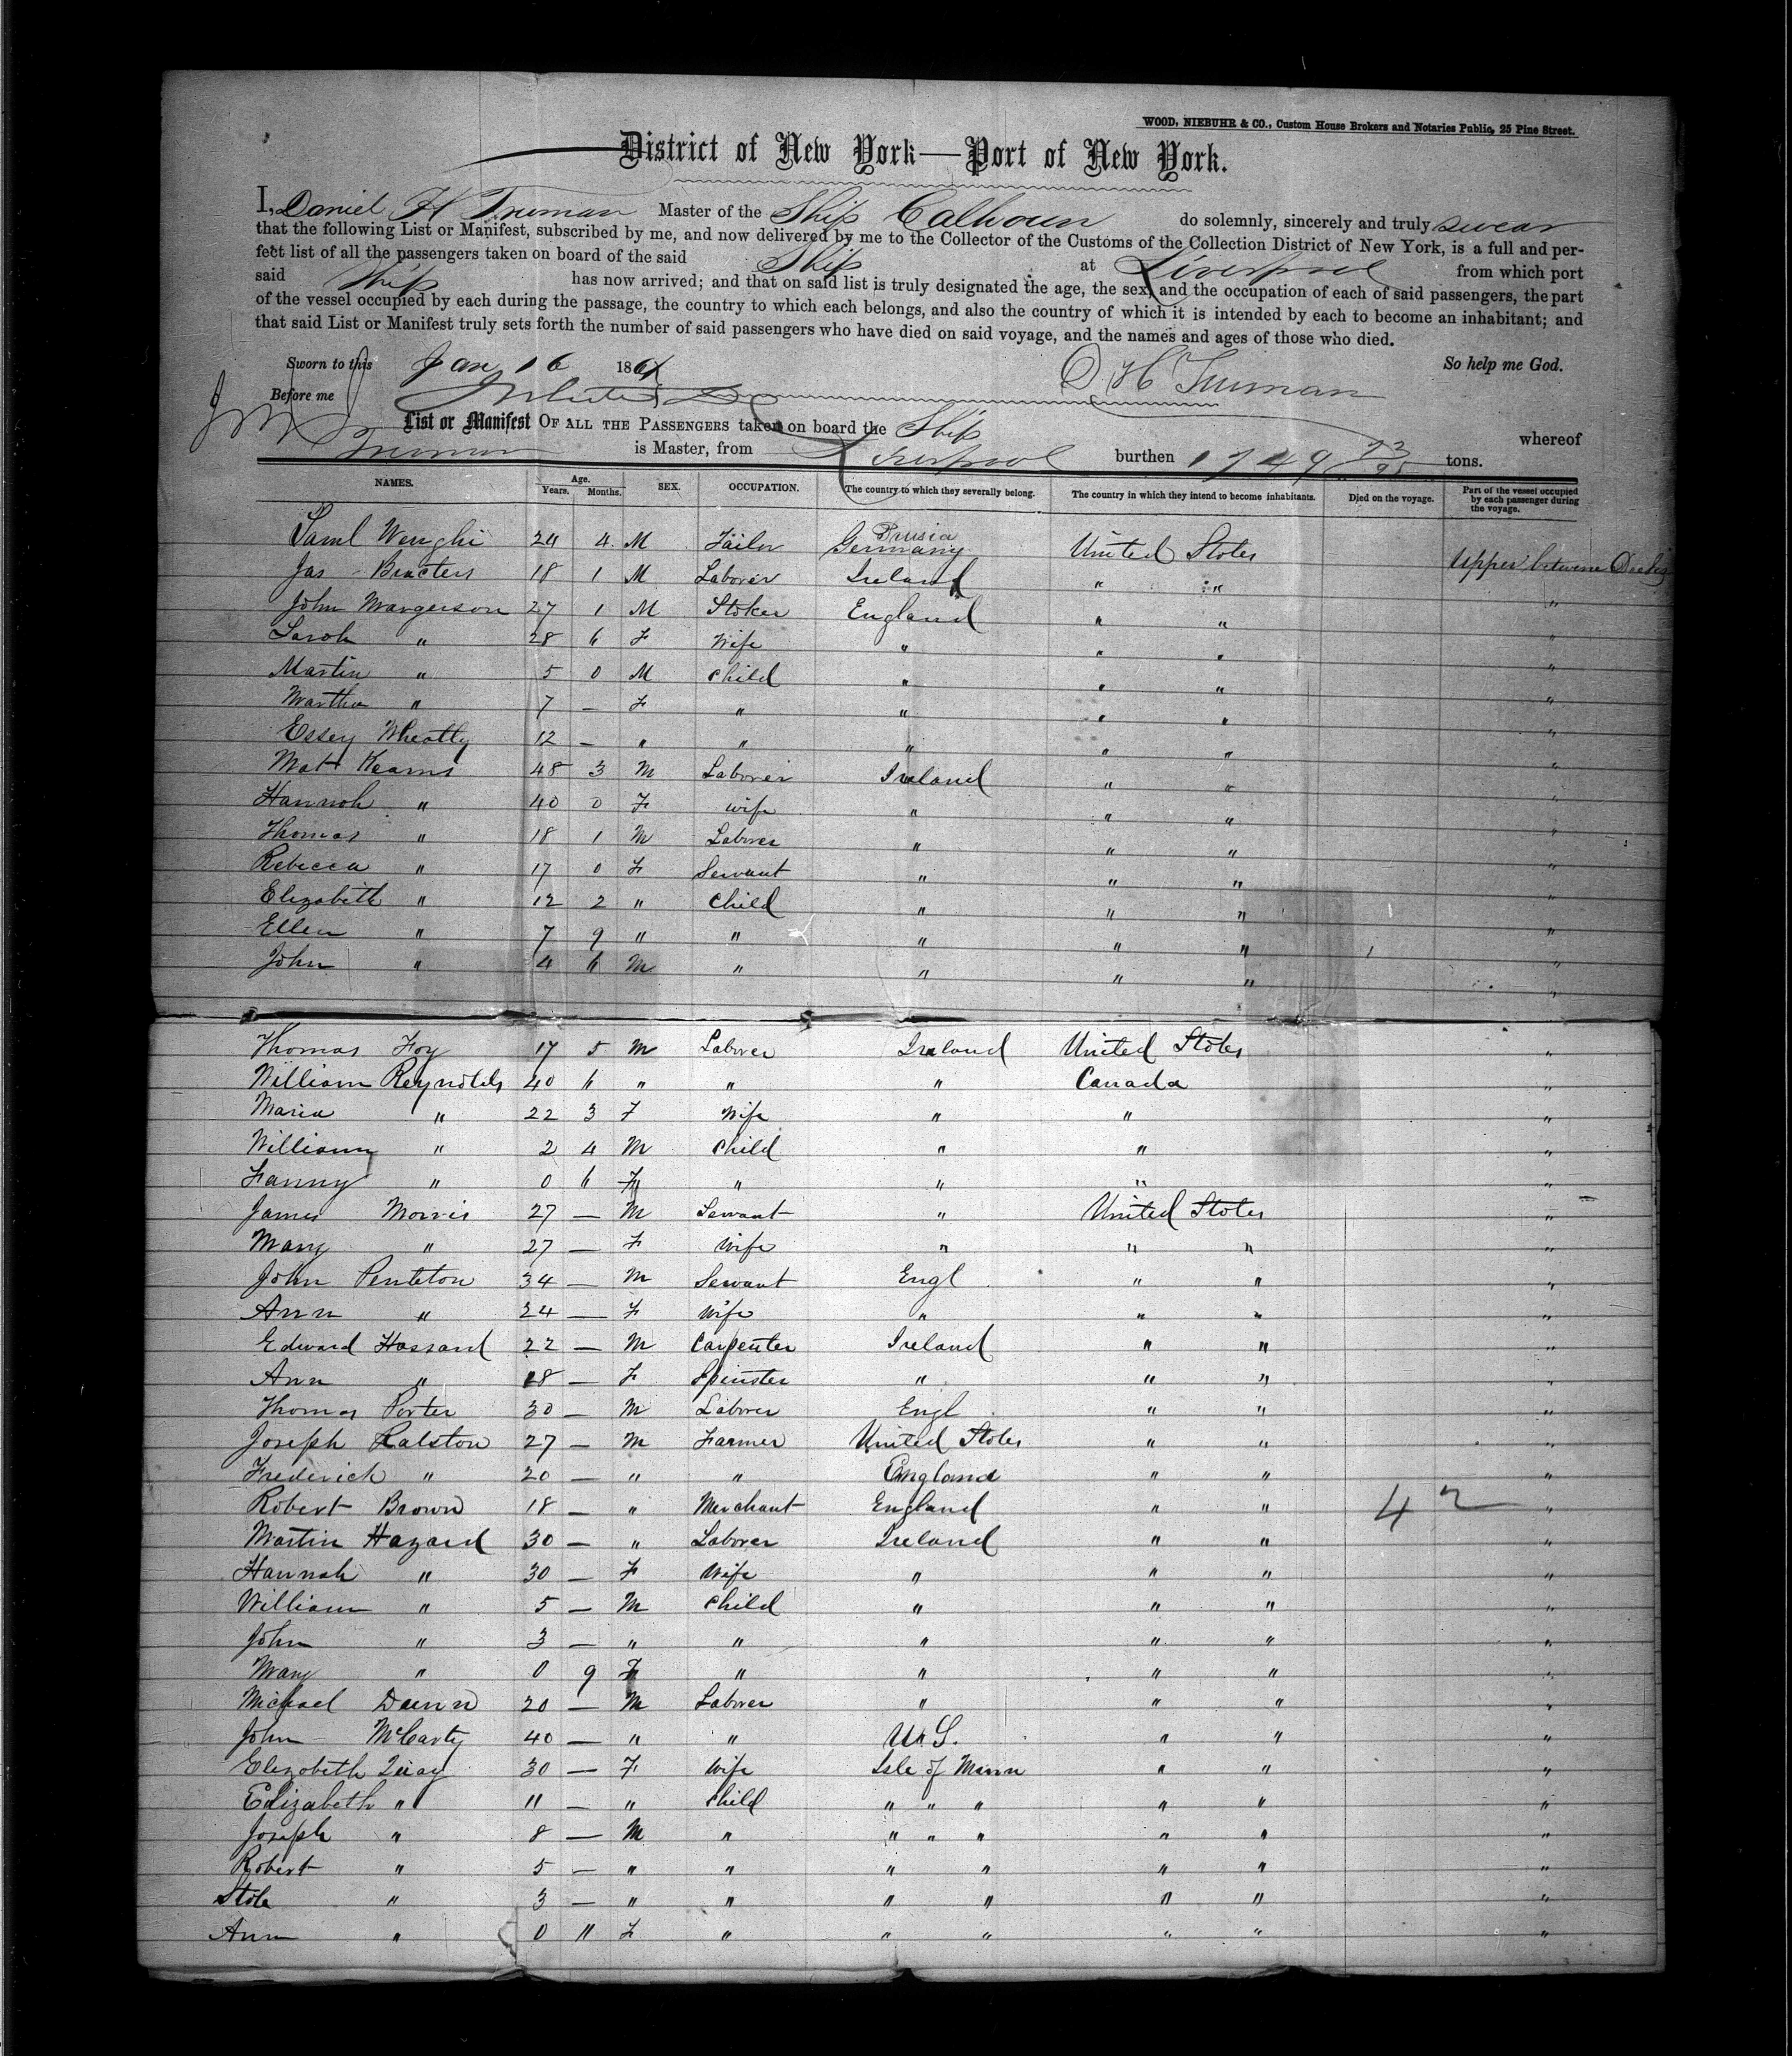 WOOD, NIEBUHR & CO., Custom House Brokers and Notaries Public, 25 Pine Street.
District of New York—Port of New York.
I, Daniel H Truman Master of the Ship Calhoun do solemnly, sincerely and truly swear
that the following List or Manifest, subscribed by me, and now delivered by me to the Collector of the Customs of the Collection District of New York, is a full and per-
fect list of all the passengers taken on board of the said Ship at Liverpool from which port
said Ship has now arrived; and that on said list is truly designated the age, the sex, and the occupation of each of said passengers, the part
of the vessel occupied by each during the passage, the country to which each belongs, and also the country of which it is intended by each to become an inhabitant; and
that said List or Manifest truly sets forth the number of said passengers who have died on said voyage, and the names and ages of those who died.
Sworn to this Jan 16 1861 D H Truman So help me God.
Before me
List or Manifest OF ALL THE PASSENGERS taken on board the Ship whereof
Truman is Master, from Liverpool burthen 1749 73/95 tons.
NAMES. Age. Years. Months. SEX. OCCUPATION. The country to which they severally belong. The country in which they intend to become inhabitants. Died on the voyage. Part of the vessel occupied by each passenger during the voyage.
Saml 24 4 M Tailor Prusia Germany United States Upper between Decks
Jas 18 1 M Laborer Ireland " " "
John Margerson 27 1 M Stoker England " " "
Sarah " 28 6 F Wife " " " "
Martin " 5 0 M Child " " " "
Martha " 7 — F " " " " "
Essey Wheatly 12 — " " " " " "
Mat Kearns 48 3 M Laborer Ireland " " "
Hannah " 40 0 F wife " " " "
Thomas " 18 1 M Laborer " " " "
Rebecca " 17 0 F Servant " " " "
Elizabeth " 12 2 " Child " " " "
Ellen " 7 9 " " " " " "
John " 4 6 M " " " " "
Thomas Foy 17 5 M Laborer Ireland United States "
William Reynolds 40 6 " " " Canada "
Maria " 22 3 F Wife " " "
William " 2 4 M Child " " "
Fanny " 0 6 F " " " "
James Morris 27 — M Servant " United States "
Mary " 27 — F Wife " " " "
John Penteton 34 — M Servant Engl " " "
Ann " 24 — F Wife " " " "
Edward Hassard 22 — M Carpenter Ireland " " "
Ann " 18 — F Spinster " " " "
Thomas Porter 30 — M Laborer Engl " " "
Joseph Ralston 27 — M Farmer United States " " "
Frederick " 20 — " " England " " "
Robert Brown 18 — " Merchant England " " 42 "
Martin Hazard 30 — " Laborer Ireland " " "
Hannah " 30 — F Wife " " " "
William " 5 — M Child " " " "
John " 3 — " " " " " "
Mary " 0 9 F " " " " "
Michael Dunn 20 — M Laborer " " " "
John McCarty 40 — " " U.S. " " "
Elizabeth Quay 30 — F Wife Isle of Mann " " "
Elizabeth " 11 — " Child " " " " " "
Joseph " 8 — M " " " " " " "
Robert " 5 — " " " " " " "
" 3 — " " " " " " "
Ann " 0 11 F " " " " " "